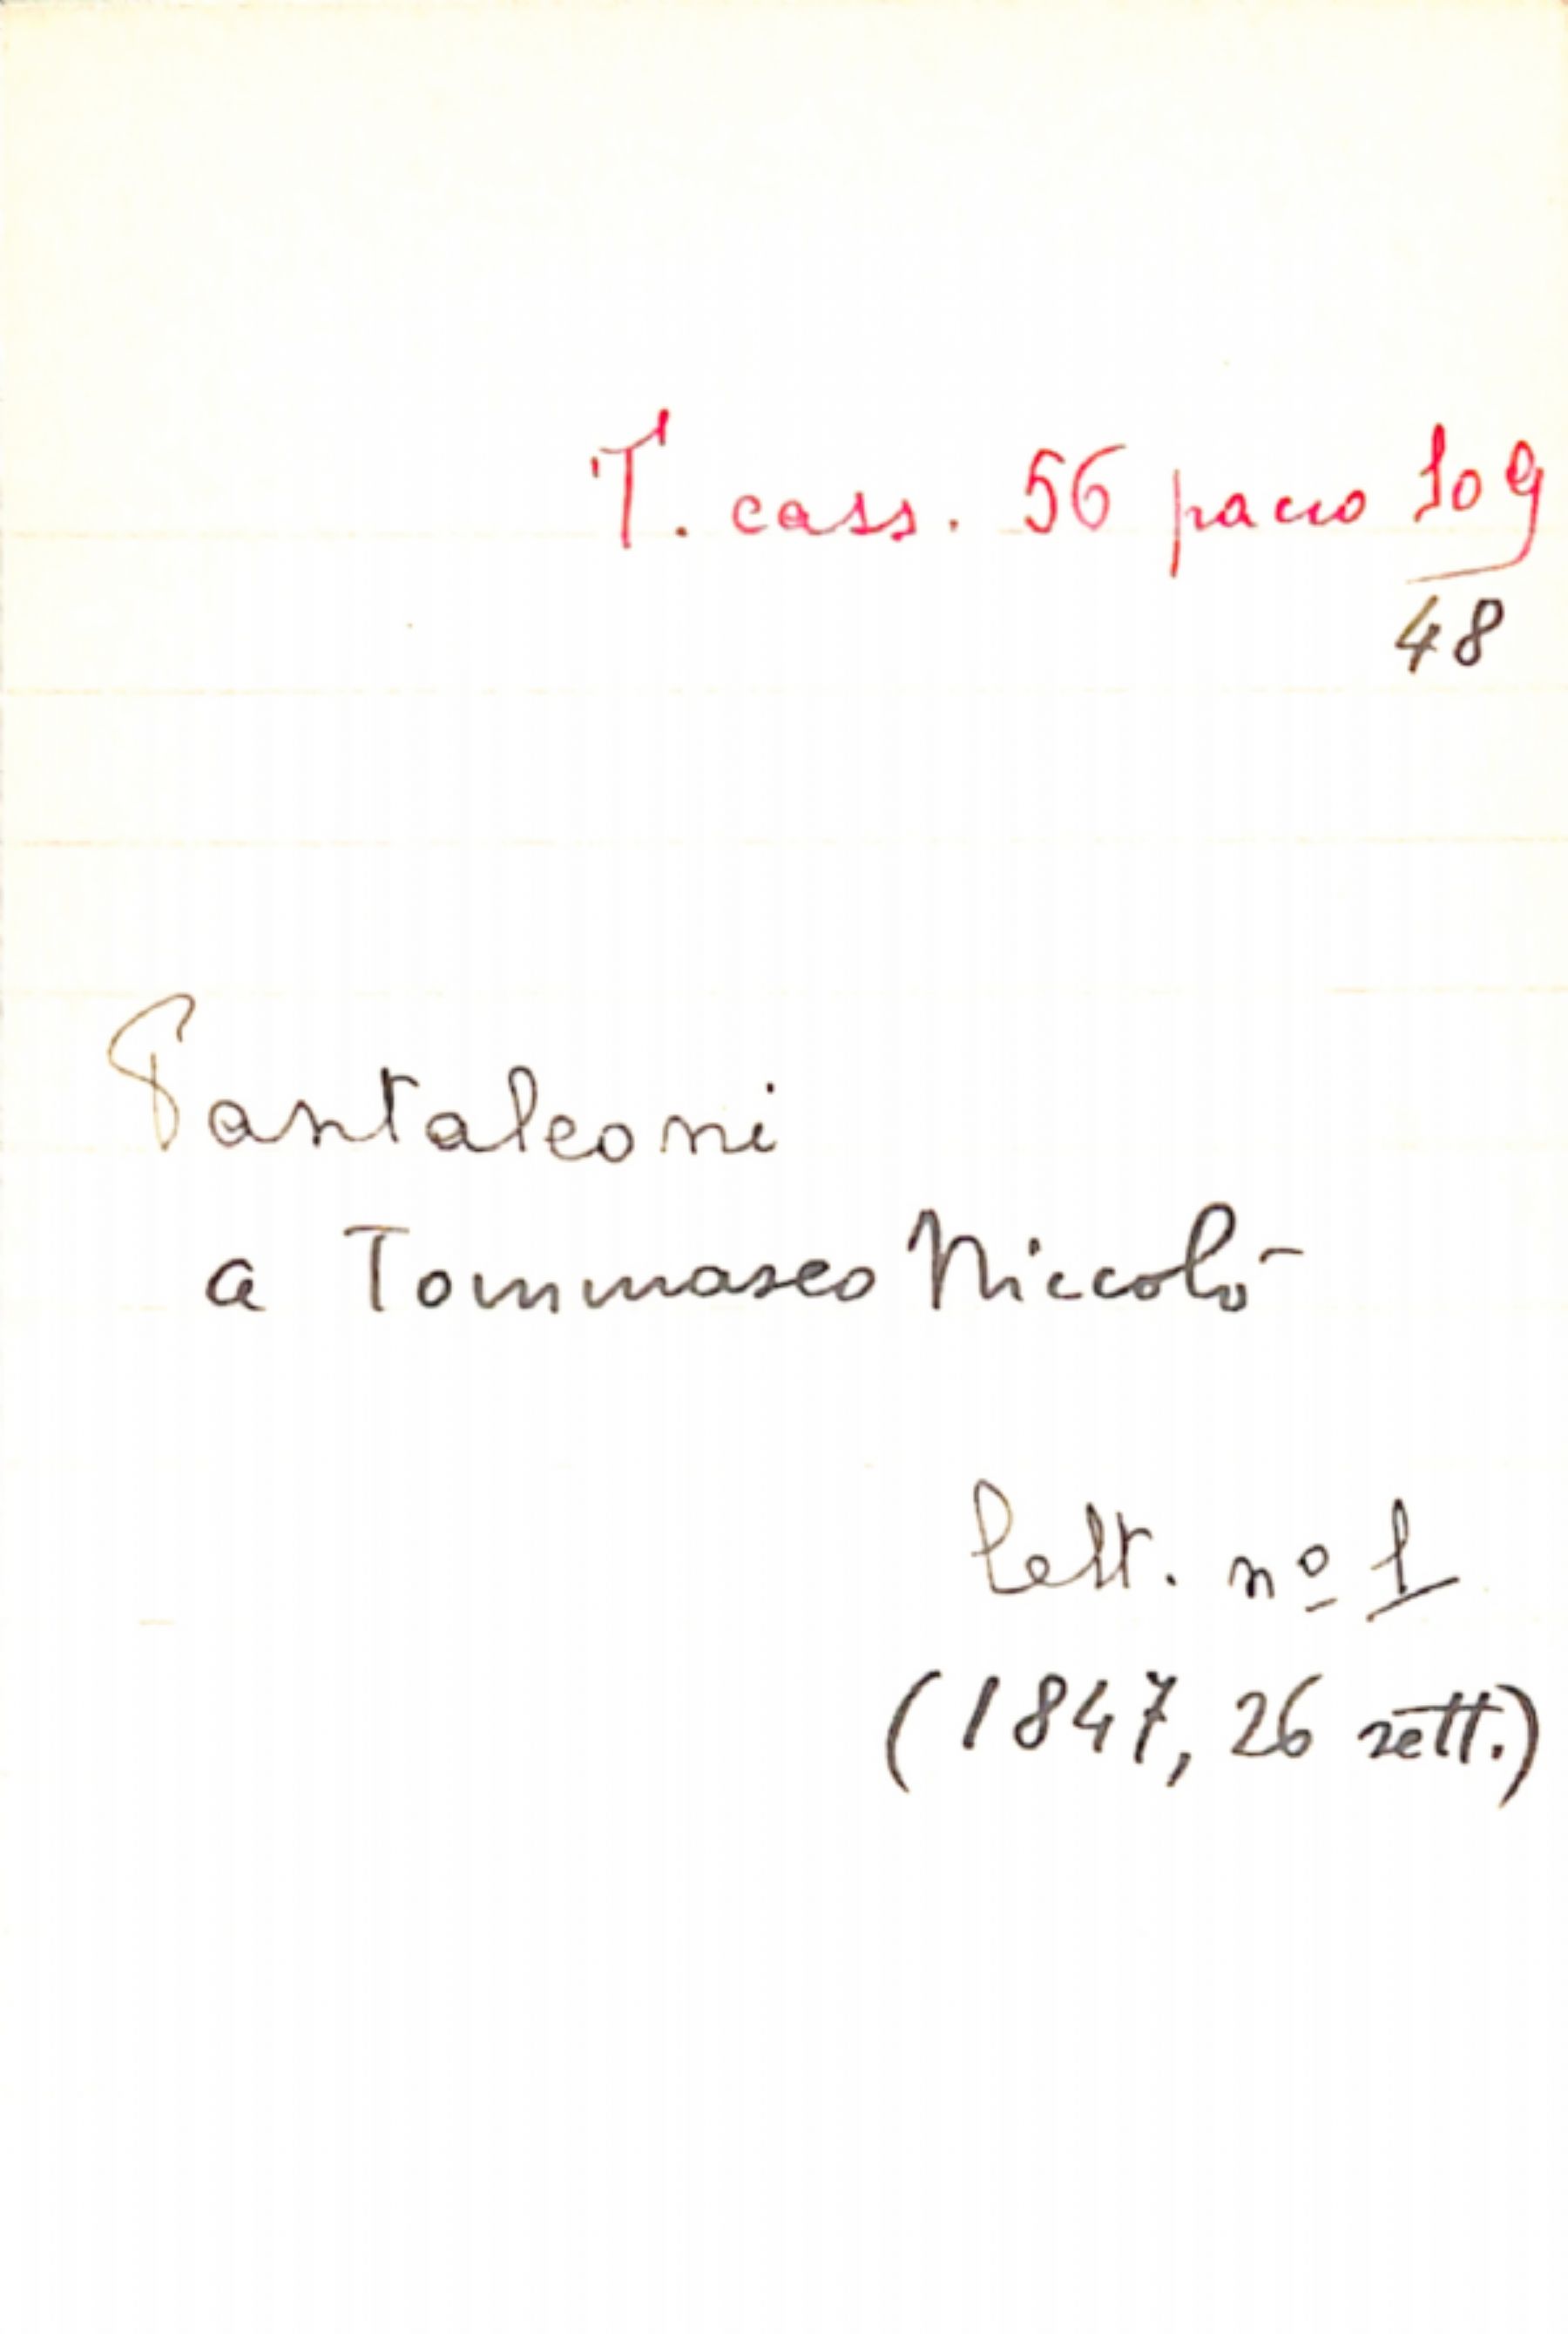 T. cass. 56 pacco 109
48
Pantaleoni
a Tommaseo Niccolò
lett. nº 1
(1847, 26 sett.)